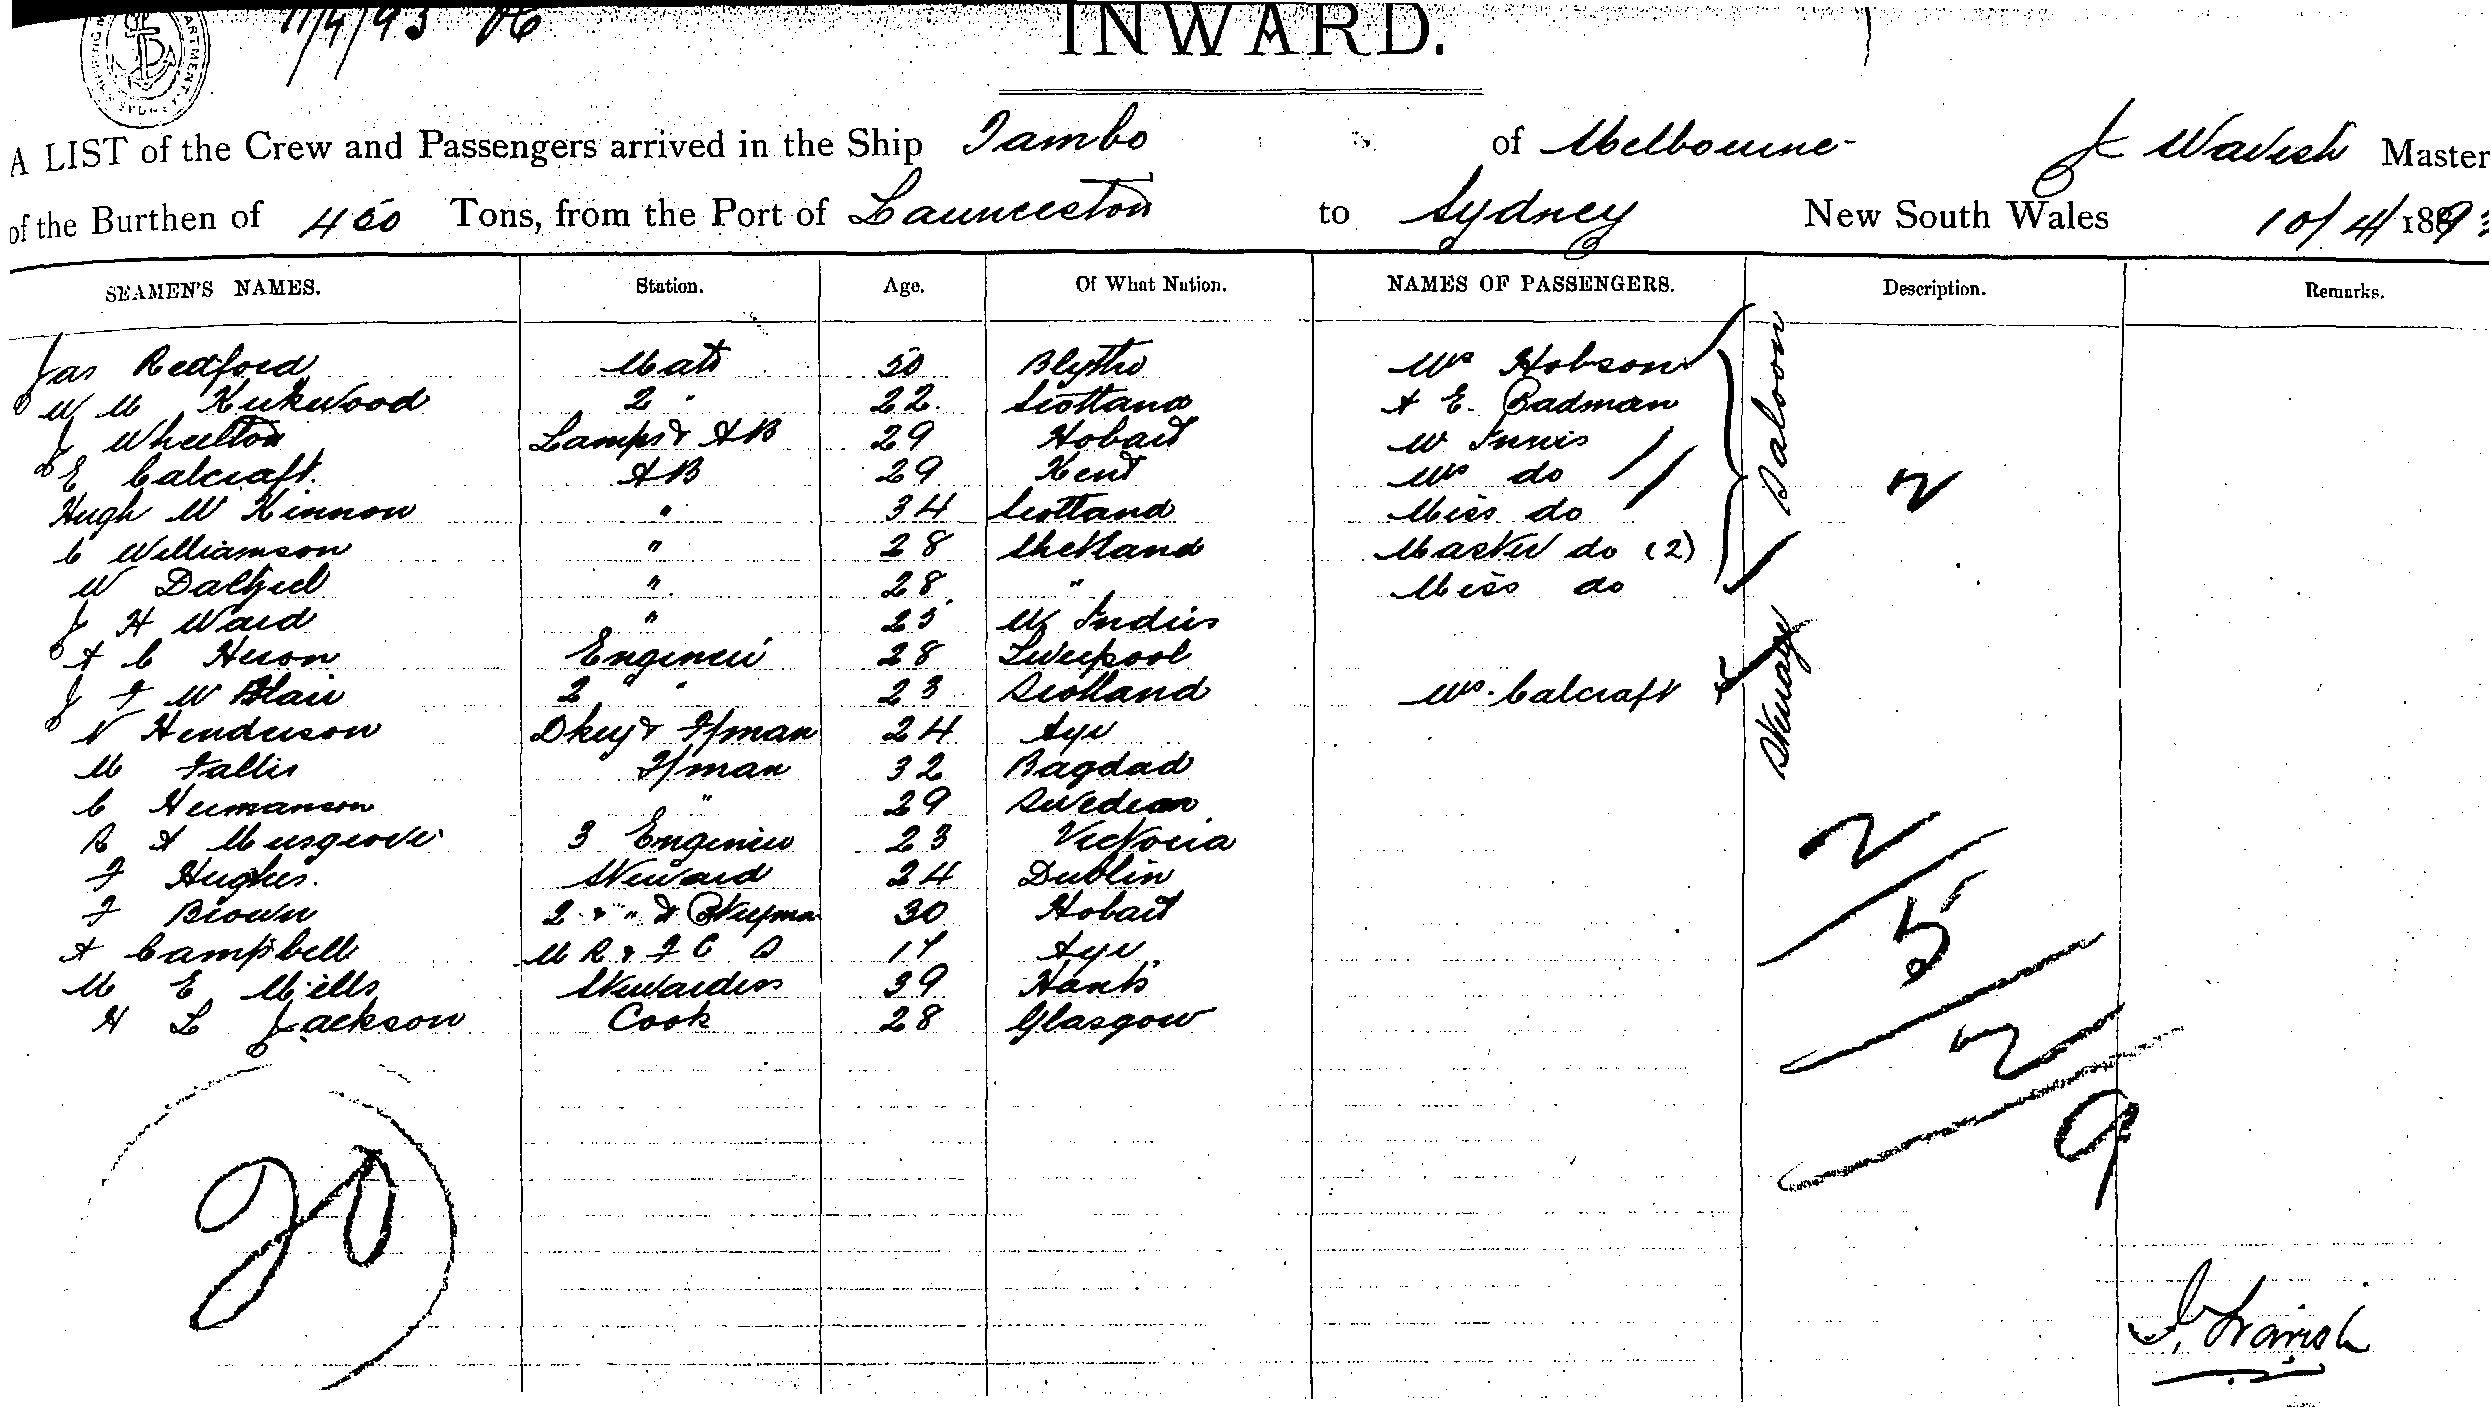 11/4/93
INWARD.
A LIST of the Crew and Passengers arrived in the Ship Tambo of Melbourne J Wavish Master
of the Burthen of 450 Tons, from the Port of Launceston to Sydney New South Wales 10/4/1893
SEAMEN'S NAMES. Station. Age. Of What Nation. NAMES OF PASSENGERS. Description. Remarks.
Jas Redford Mate 50 Blythe Mrs Hobson
W M Kirkwood 2 " 22 Scotland A E. Badman
J Wheelton Lamps & AB 29 Hobart W Innis
E Calcraft. AB 29 Kent Mrs do
Hugh Mc Kinnon " 34 Scotland Miss do
C Williamson " 28 Shetland Master do (2)
W Dalziel " 28 " Miss do
Saloon
2
J H Ward " 25 W Indies
A C Heron Engineer 28 Liverpool
J F W Blair 2 " 23 Scotland Mrs. Calcraft
Steerage
N Henderson Dkey & F/man 24 Ayr
M Fallis F/man 32 Bagdad
C Hermanson " 29 Sweden
R A Musgrove 3 Engineer 23 Victoria
F Hughes. Steward 24 Dublin
F Brown 2 & " & 30 Hobart
A Campbell M R & F C S 17 Ayr
M E Mills Stewardess 39 Hants
H L Jackson Cook 28 Glasgow
2
5
2
9
20
J. Wavish